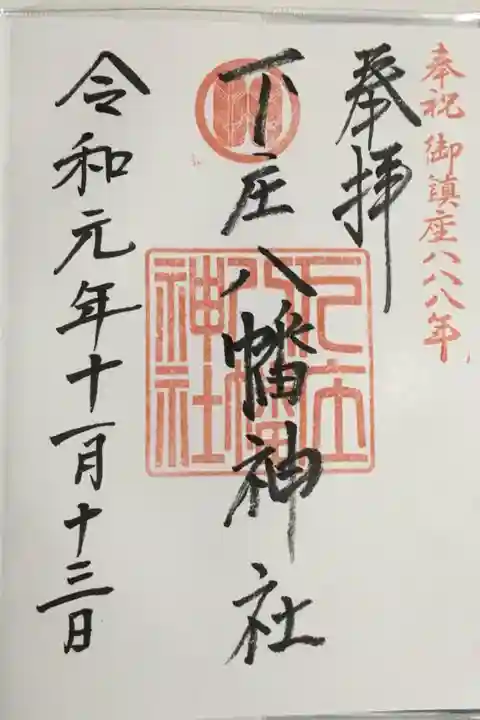 奉祝 御鎮座八八八年
奉拝
下庄八幡神社
令和元年十一月十三日
下庄
八幡
神社